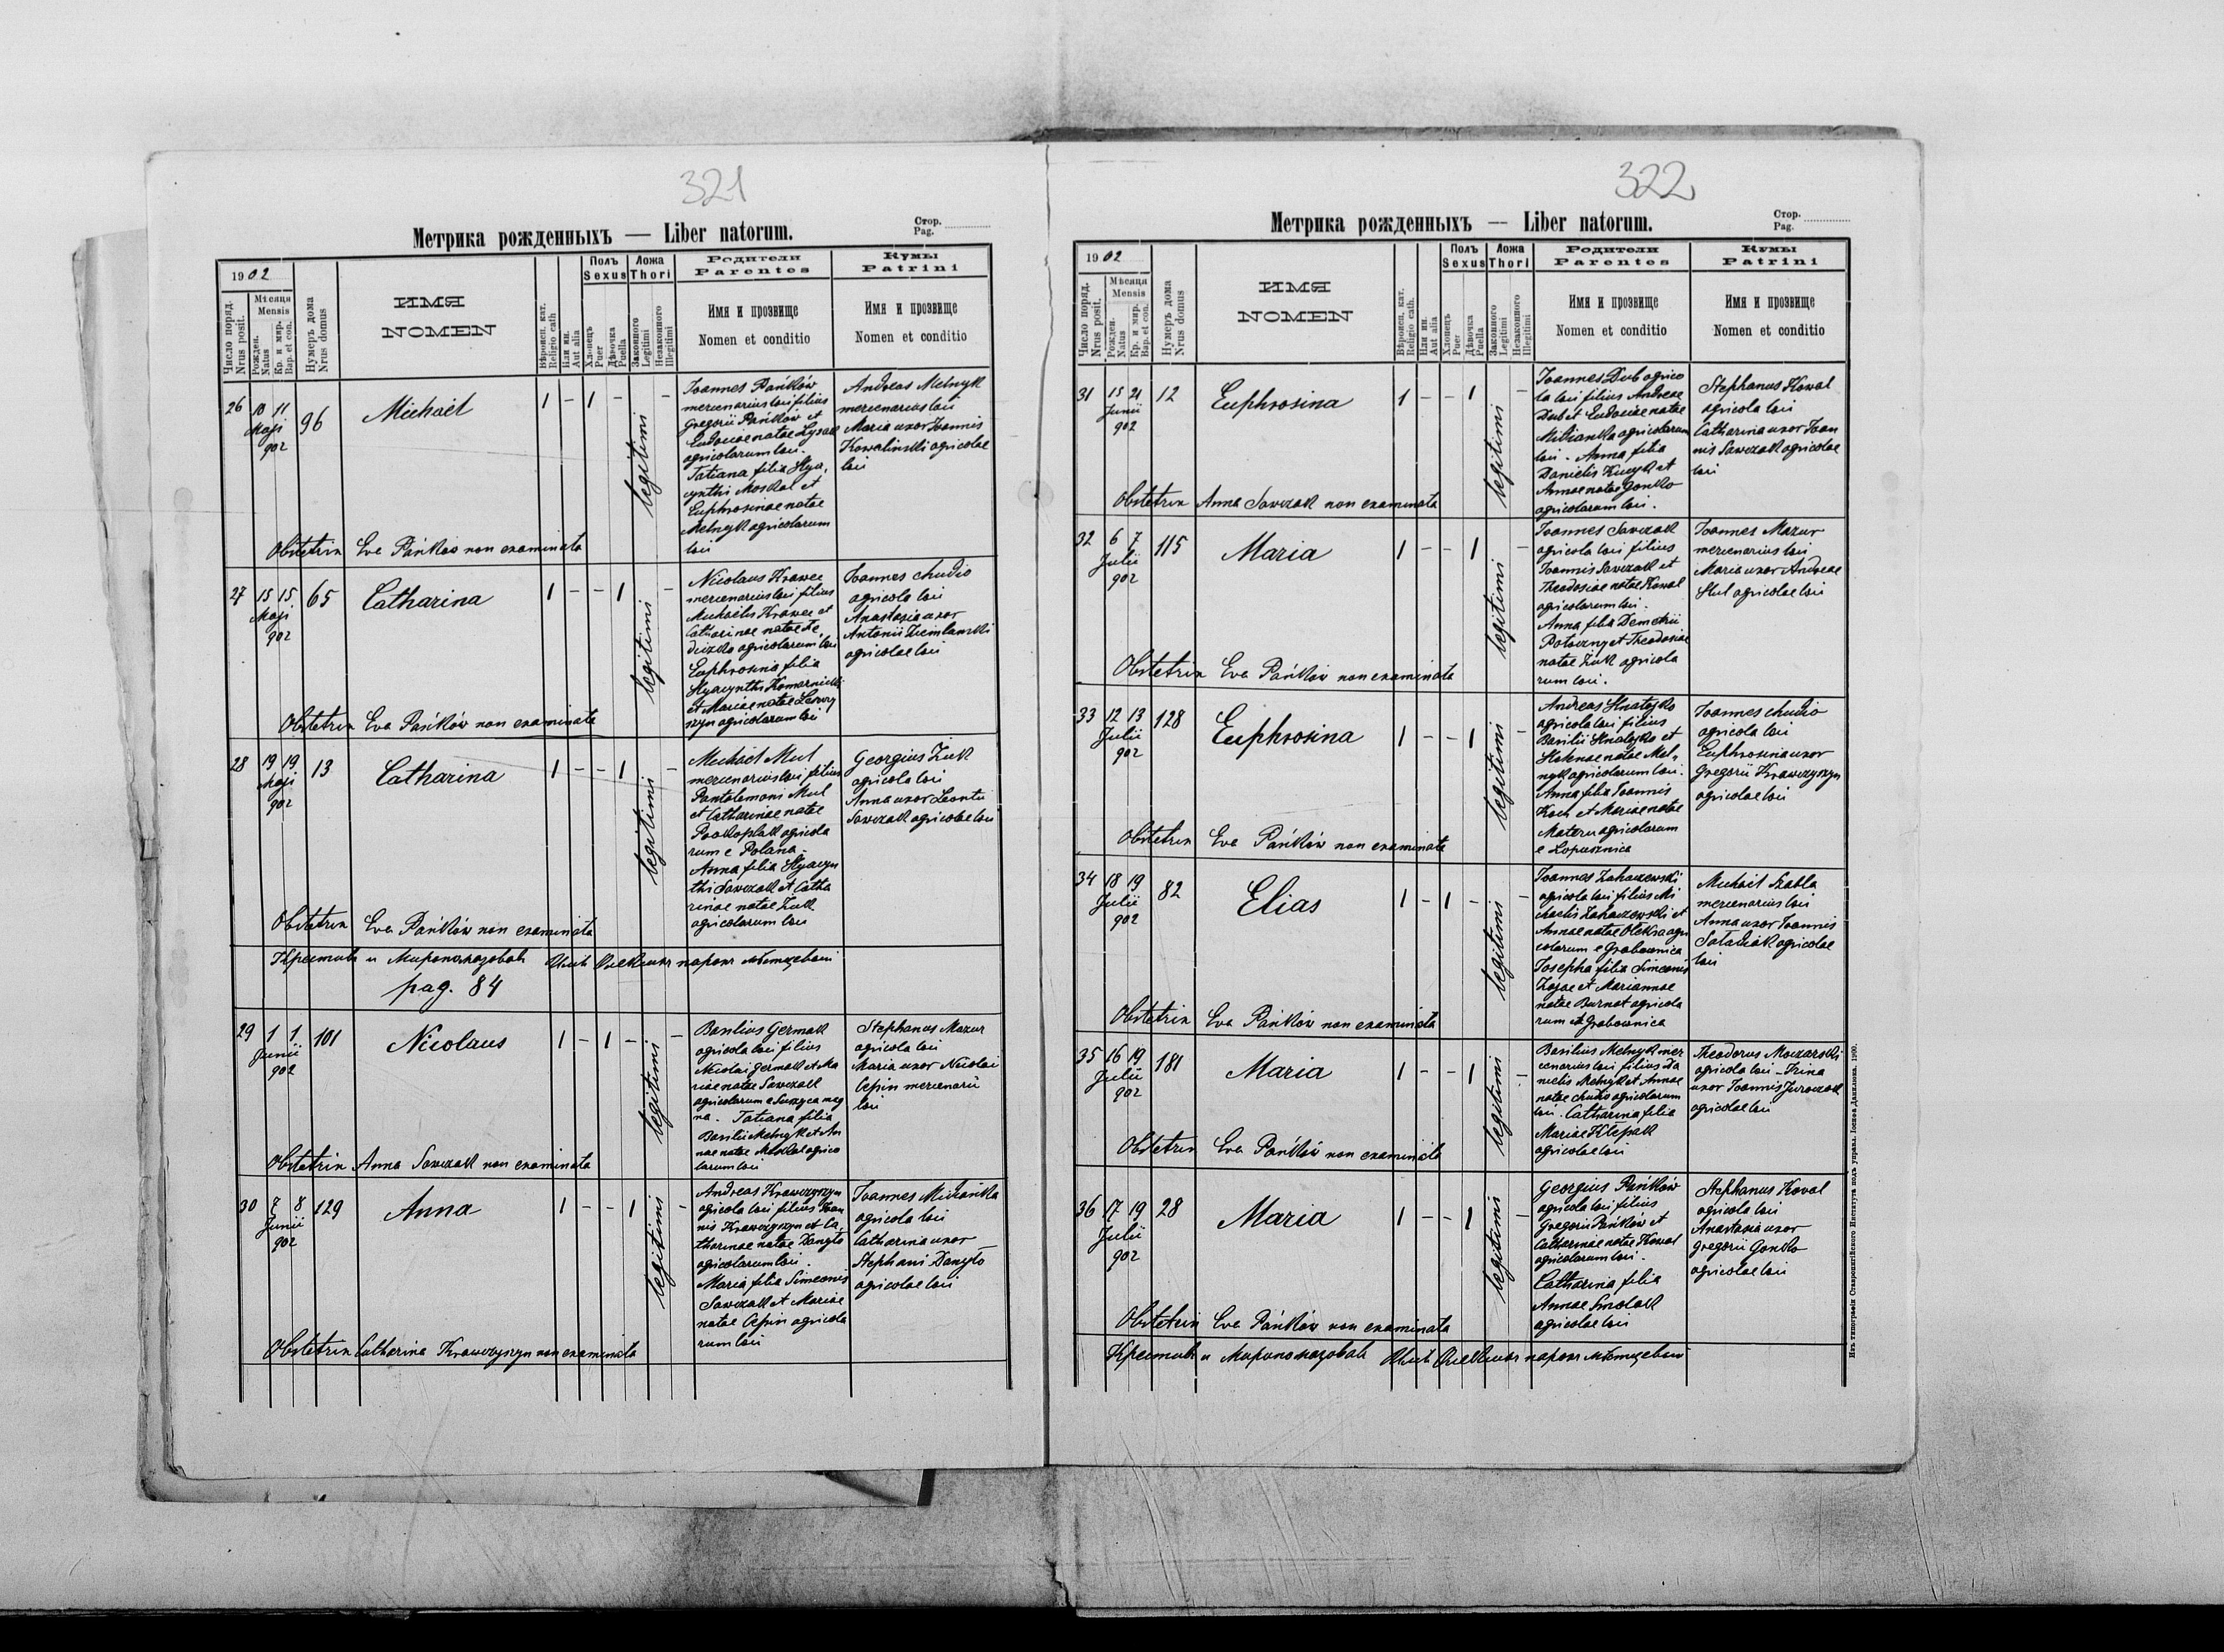 321
Метрика рожденныхъ — Liber natorum.
Стор.
Pag.
1902
Число поряд.
Nrus posit.
Мѣсяца
Mensis
Рожден.
Natus
Кр. и мир.
Bap. et con.
Нумеръ дома
Nrus domus
ИМЯ
NOMEN
Вѣроисп. кат.
Religio cath
Или ин.
Aut alia
Полъ
Sexus
Хлопецъ
Puer
Дѣвочка
Puella
Ложа
Thori
Законного
Legitimi
Незаконного
Illegitimi
Родители
Parentes
Имя и прозвище
Nomen et conditio
Кумы
Patrini
Имя и прозвище
Nomen et conditio
26 10 11 Maji 902 96 Michaël 1 - 1 - legitimi -
Joannes Pańków
mercenarius loci filius
Gregorii Pańków et
Eudociae natae Lysak
agricolarum loci.
Tatiana filia Hya,
cynthi Moskal et
Euphrosinae natae
Melnyk agricolarum
loci
Andreas Melnyk
mercenarius loci
Maria uxor Joannis
Kowalinski agricolae
loci
Obstetrix Eva Pańków non examinata
27 15 15 Maji 902 65 Catharina 1 - - 1 legitimi -
Nicolaus Krawec
mercenarius loci filius
Michaëlis Krawec et
Catharinae natae Fe,
agricolarum loci
Euphrosina filia
Hyacynthi Komarnicki
et Mariae natae
agricolarum loci
Joannes Chudio
agricola loci
Anastasia uxor
Antonii Ziemlanski
agricolae loci
Obstetrix Eva Pańków non examinata
28 19 19 Maji 902 13 Catharina 1 - - 1 legitimi -
Michaël Mul
mercenarius loci filius
Pantalemonis Mul
et Catharinae natae
Prokoplak agricola
rum e Polana -
Anna filia Hyacyn
thi Sawczak et Catha
rinae natae Zuk
agricolarum loci
Georgius Zuk
agricola loci
Anna uxor Leontii
Sawczak agricolae loci
Obstetrix Eva Pańków non examinata
Крестивъ и Миропомазовавъ парохъ мѣстцевый
pag. 84
29 1 1 Junii 902 101 Nicolaus 1 - 1 - legitimi -
Basilius Germak
agricola loci filius
Nicolai Germak et Ma
riae natae Sawczak
agricolarum e Suszyca mag
na. Tatiana filia
Basilii Melnyk et An
nae natae Moskal agrico
larum loci
Stephanus Mazur
agricola loci
Maria uxor Nicolai
Cepin mercenarii
loci
Obstetrix Anna Sawczak non examinata
30 7 8 Junii 902 129 Anna 1 - - 1 legitimi -
Andreas Krawczyszyn
agricola loci filius Joan
nis Krawczyszyn et Ca,
tharinae natae Danylo
agricolarum loci.
Maria filia Simeonis
Sawczak et Mariae
natae Cepin agricola
rum loci
Joannes Miczanka
agricola loci
Catharina uxor
Stephani Danylo
agricolae loci
Obstetrix Catharina Krawczyszyn non examinata
322
Метрика рожденныхъ — Liber natorum.
Стор.
Pag.
1902
Число поряд.
Nrus posit.
Мѣсяца
Mensis
Рожден.
Natus
Кр. и мир.
Bap. et con.
Нумеръ дома
Nrus domus
ИМЯ
NOMEN
Вѣроисп. кат.
Religio cath.
Или ин.
Aut alia
Полъ
Sexus
Хлопецъ
Puer
Дѣвочка
Puella
Ложа
Thori
Законного
Legitimi
Незаконного
Illegitimi
Родители
Parentes
Имя и прозвище
Nomen et conditio
Кумы
Patrini
Имя и прозвище
Nomen et conditio
31 15 21 Junii 902 12 Euphrosina 1 - - 1 legitimi -
Joannes Dub agrico
la loci filius Andreae
Dub et Eudociae natae
Milianka agricolarum
loci. Anna filia
Danielis Kucyk et
Annae natae Gonko
agricolarum loci.
Stephanus Kowal
agricola loci
Catharina uxor Joan
nis Sawczak agricolae
loci
Obstetrix Anna Sawczak non examinata
32 6 7 Julii 902 115 Maria 1 - - 1 legitimi -
Joannes Sawczak
agricola loci filius
Joannis Sawczak et
Theodosiae natae Kowal
agricolarum loci.
Anna filia Demetrii
Potoczny et Theodosiae
natae Zuk agricola
rum loci.
Joannes Mazur
mercenarius loci
Maria uxor Andreae
Hul agricolae loci
Obstetrix Eva Pańków non examinata
33 12 13 Julii 902 128 Euphrosina 1 - - 1 legitimi -
Andreas Hnatejko
agricola loci filius
Basilii Hnatejko et
Hahnae natae Mel,
nyk agricolarum loci.
Anna filia Joannis
Koch et Mariae natae
Matern agricolarum
e Lopusznica
Joannes Chudio
agricola loci
Euphrosina uxor
Gregorii Krawczyszyn
agricolae loci
Obstetrix Eva Pańków non examinata
34 18 19 Julii 902 82 Elias 1 - 1 - legitimi -
Joannes Zahaczewski
agricola loci filius Mi
chaelis Zahaczewski et
Annae natae Oleksa agri
colarum e Grabownica
Josepha filia Simeonis
Zajac et Mariannae
natae Burnat agricola
rum e Grabownica
Michaël Szabla
mercenarius loci
Anna uxor Joannis
Sataduk agricolae
loci
Obstetrix Eva Pańków non examinata
35 16 19 Julii 902 181 Maria 1 - - 1 legitimi -
Basilius Melnyk mer
cenarius loci filius Da
nielis Melnyk et Annae
natae Chudio agricolarum
loci. Catharina filia
Mariae Klepak
agricolae loci
Theodorus Moczarski
agricola loci - Irina
uxor Joannis Jurczak
agricolae loci
Obstetrix Eva Pańków non examinata
36 17 19 Julii 902 28 Maria 1 - - 1 legitimi -
Georgius Pańków
agricola loci filius
Gregorii Pańków et
Catharinae natae Kowal
agricolarum loci.
Catharina filia
Annae Smolak
agricolae loci
Stephanus Koval
agricola loci
Anastasia uxor
Gregorii Gonko
agricolae loci
Obstetrix Eva Pańków non examinata
Крестивъ и Миропомазовавъ парохъ мѣстцевый
Изъ типографіи Ставропигійского Института подъ управл. Іосифа Данилюка. 1900.